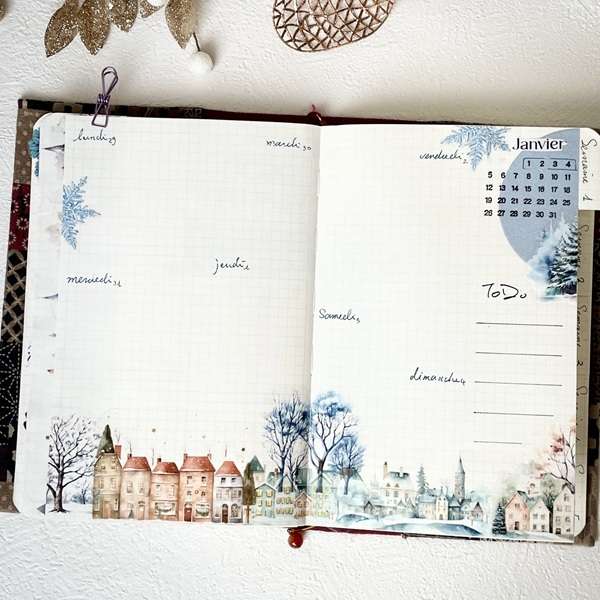 lundi 29
mardi 30
mercredi 31
jeudi 1
vendredi 2
Janvier
1 2 3 4
5 6 7 8 9 10 11
12 13 14 15 16 17 18
19 20 21 22 23 24 25
26 27 28 29 30 31
ToDo
Samedi 3
dimanche 4
Semaine 1
Semaine 2
Semaine 3